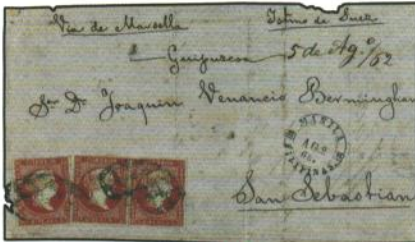 Via de Marsella Istmo de Suez
Guipuzcoa 5 de Ag.º/62
Sr Dn Joaquin Venancio Berminghan
MANILA
San Sebastian